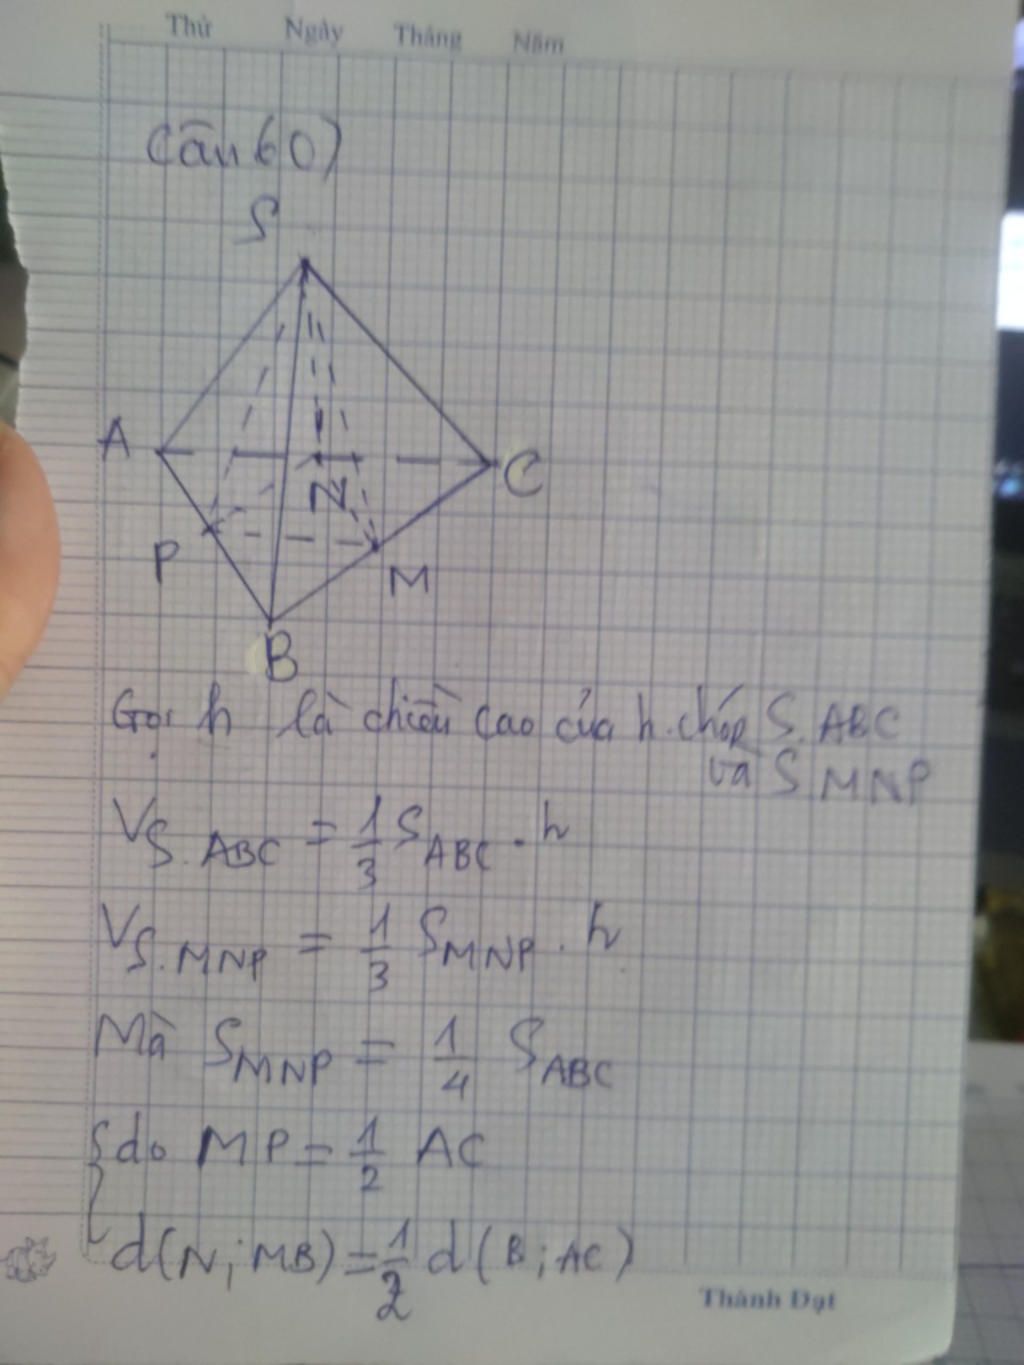 Thứ Ngày Tháng Năm
Câu 60)
S
A
C
N
P
M
B
Gọi h là chiều cao của h.chóp S.ABC
và S MNP
V_{S.ABC} = \frac{1}{3} S_{ABC} . h
V_{S.MNP} = \frac{1}{3} S_{MNP} . h
Mà S_{MNP} = \frac{1}{4} S_{ABC}
do MP = \frac{1}{2} AC
d(N;MB) = \frac{1}{2} d(B;AC)
Thành Đạt